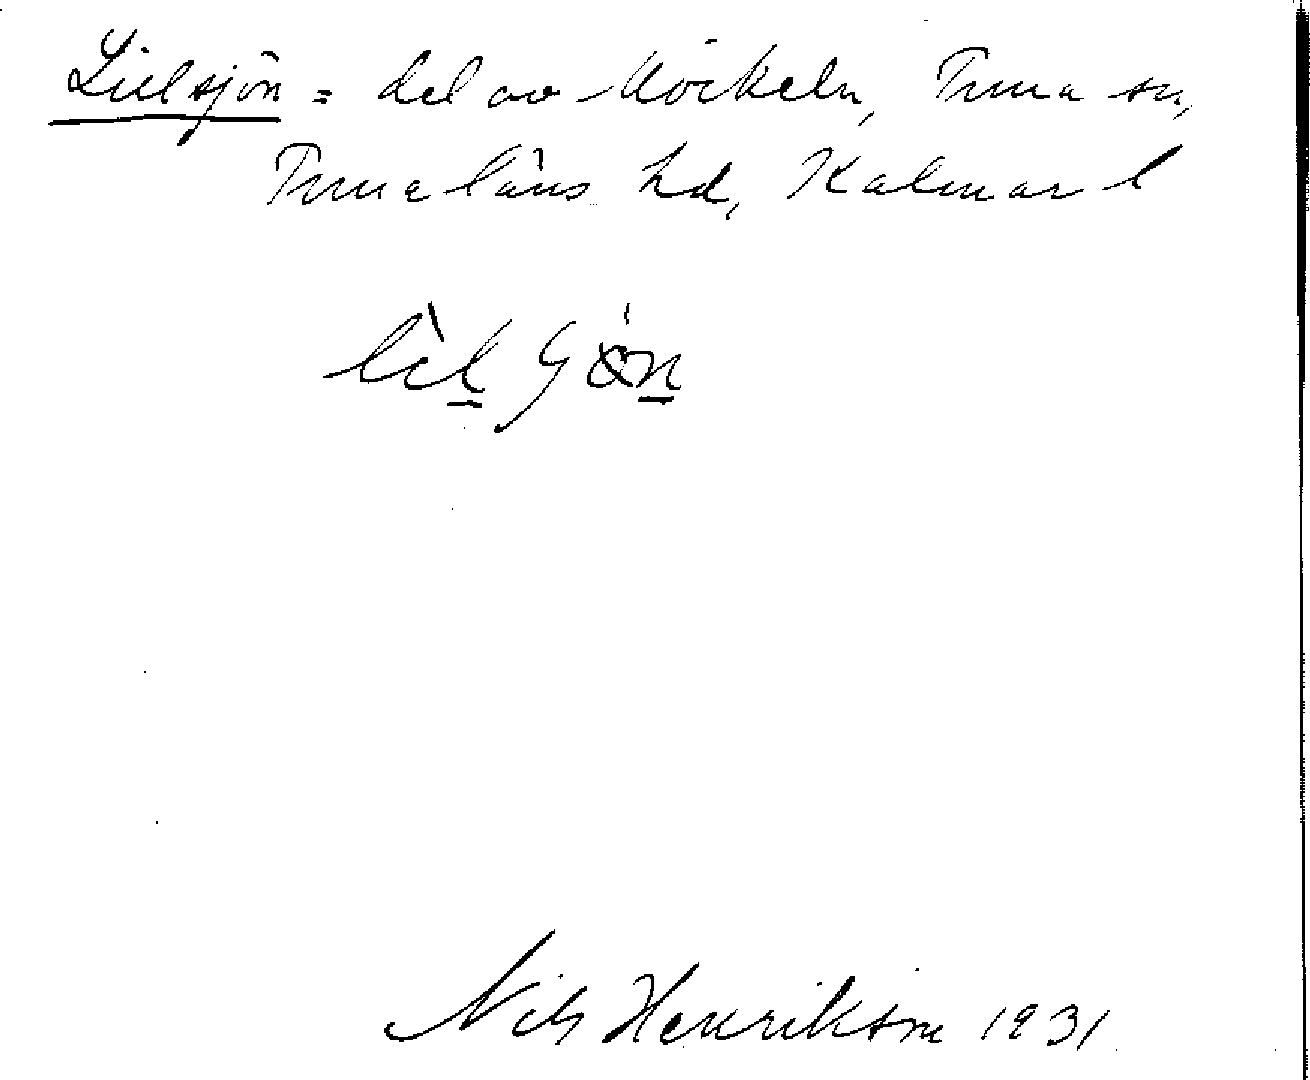 Lillsjön = del av Möckeln, Tuna sn,
Tunaläns hd, Kalmar l
Nils Henrikson 1931